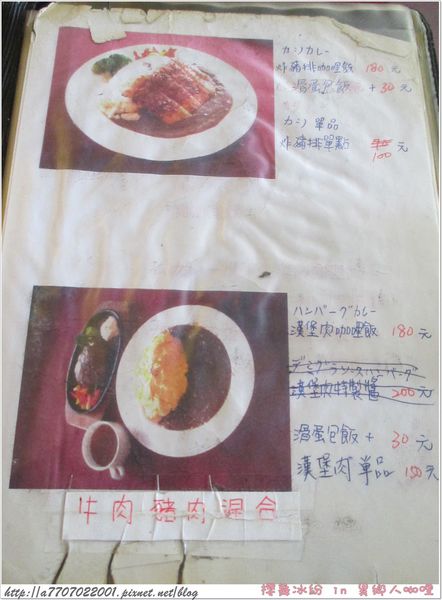 カツカレー
炸豬排咖哩飯 180元
滑蛋包飯 +30元
カツ 單品
炸豬排單點 100元
ハンバーグカレー
漢堡肉咖哩飯 180元
デミグラソースハンバーグ
漢堡肉特製醬 200元
滑蛋包飯 + 30元
漢堡肉單品 150元
牛肉豬肉混合
http://a7707022001.pixnet.net/blog
檸舞冰紛 in 異鄉人咖哩